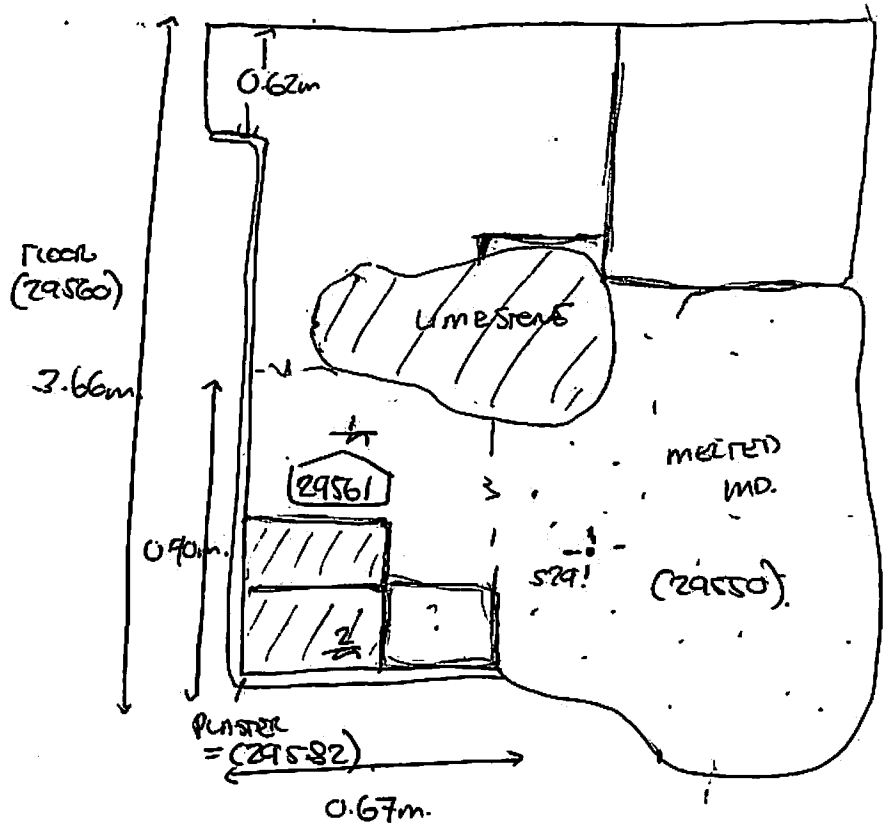 0.62m
FLOOR
(29560)
3.66m
LIMESTONE
1
29561
MELTED
MD.
0.90m.
529!
(29550).
?
2
PLASTER
= (29582)
0.67m.